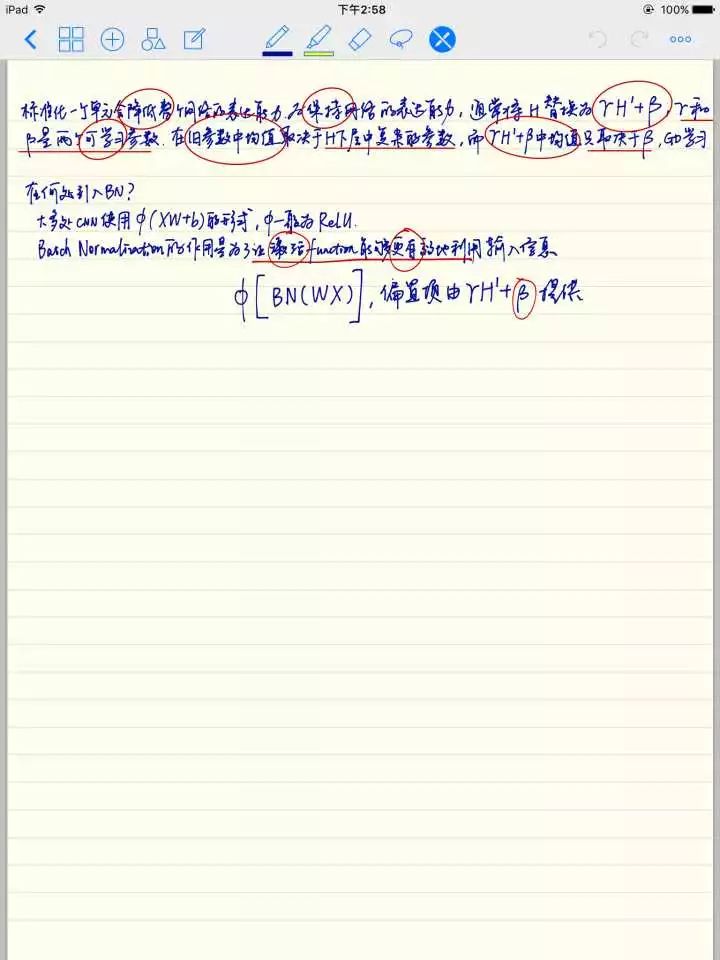 iPad 下午2:58 100%
标准化一个单元会降低整个网络的表达能力.为保持网络的表达能力,通常将H替换为γH'+β,γ和
β是两个可学习参数.在旧参数中均值取决于H下层中复杂的参数,而γH'+β中均值只取决于β,GD学习
在何处引入BN?
大多处CNN使用φ(XW+b)的形式,φ一般为ReLU.
Batch Normalization的作用是为了让激活function能够更有效地利用输入信息
φ[BN(WX)],偏置项由γH'+β提供